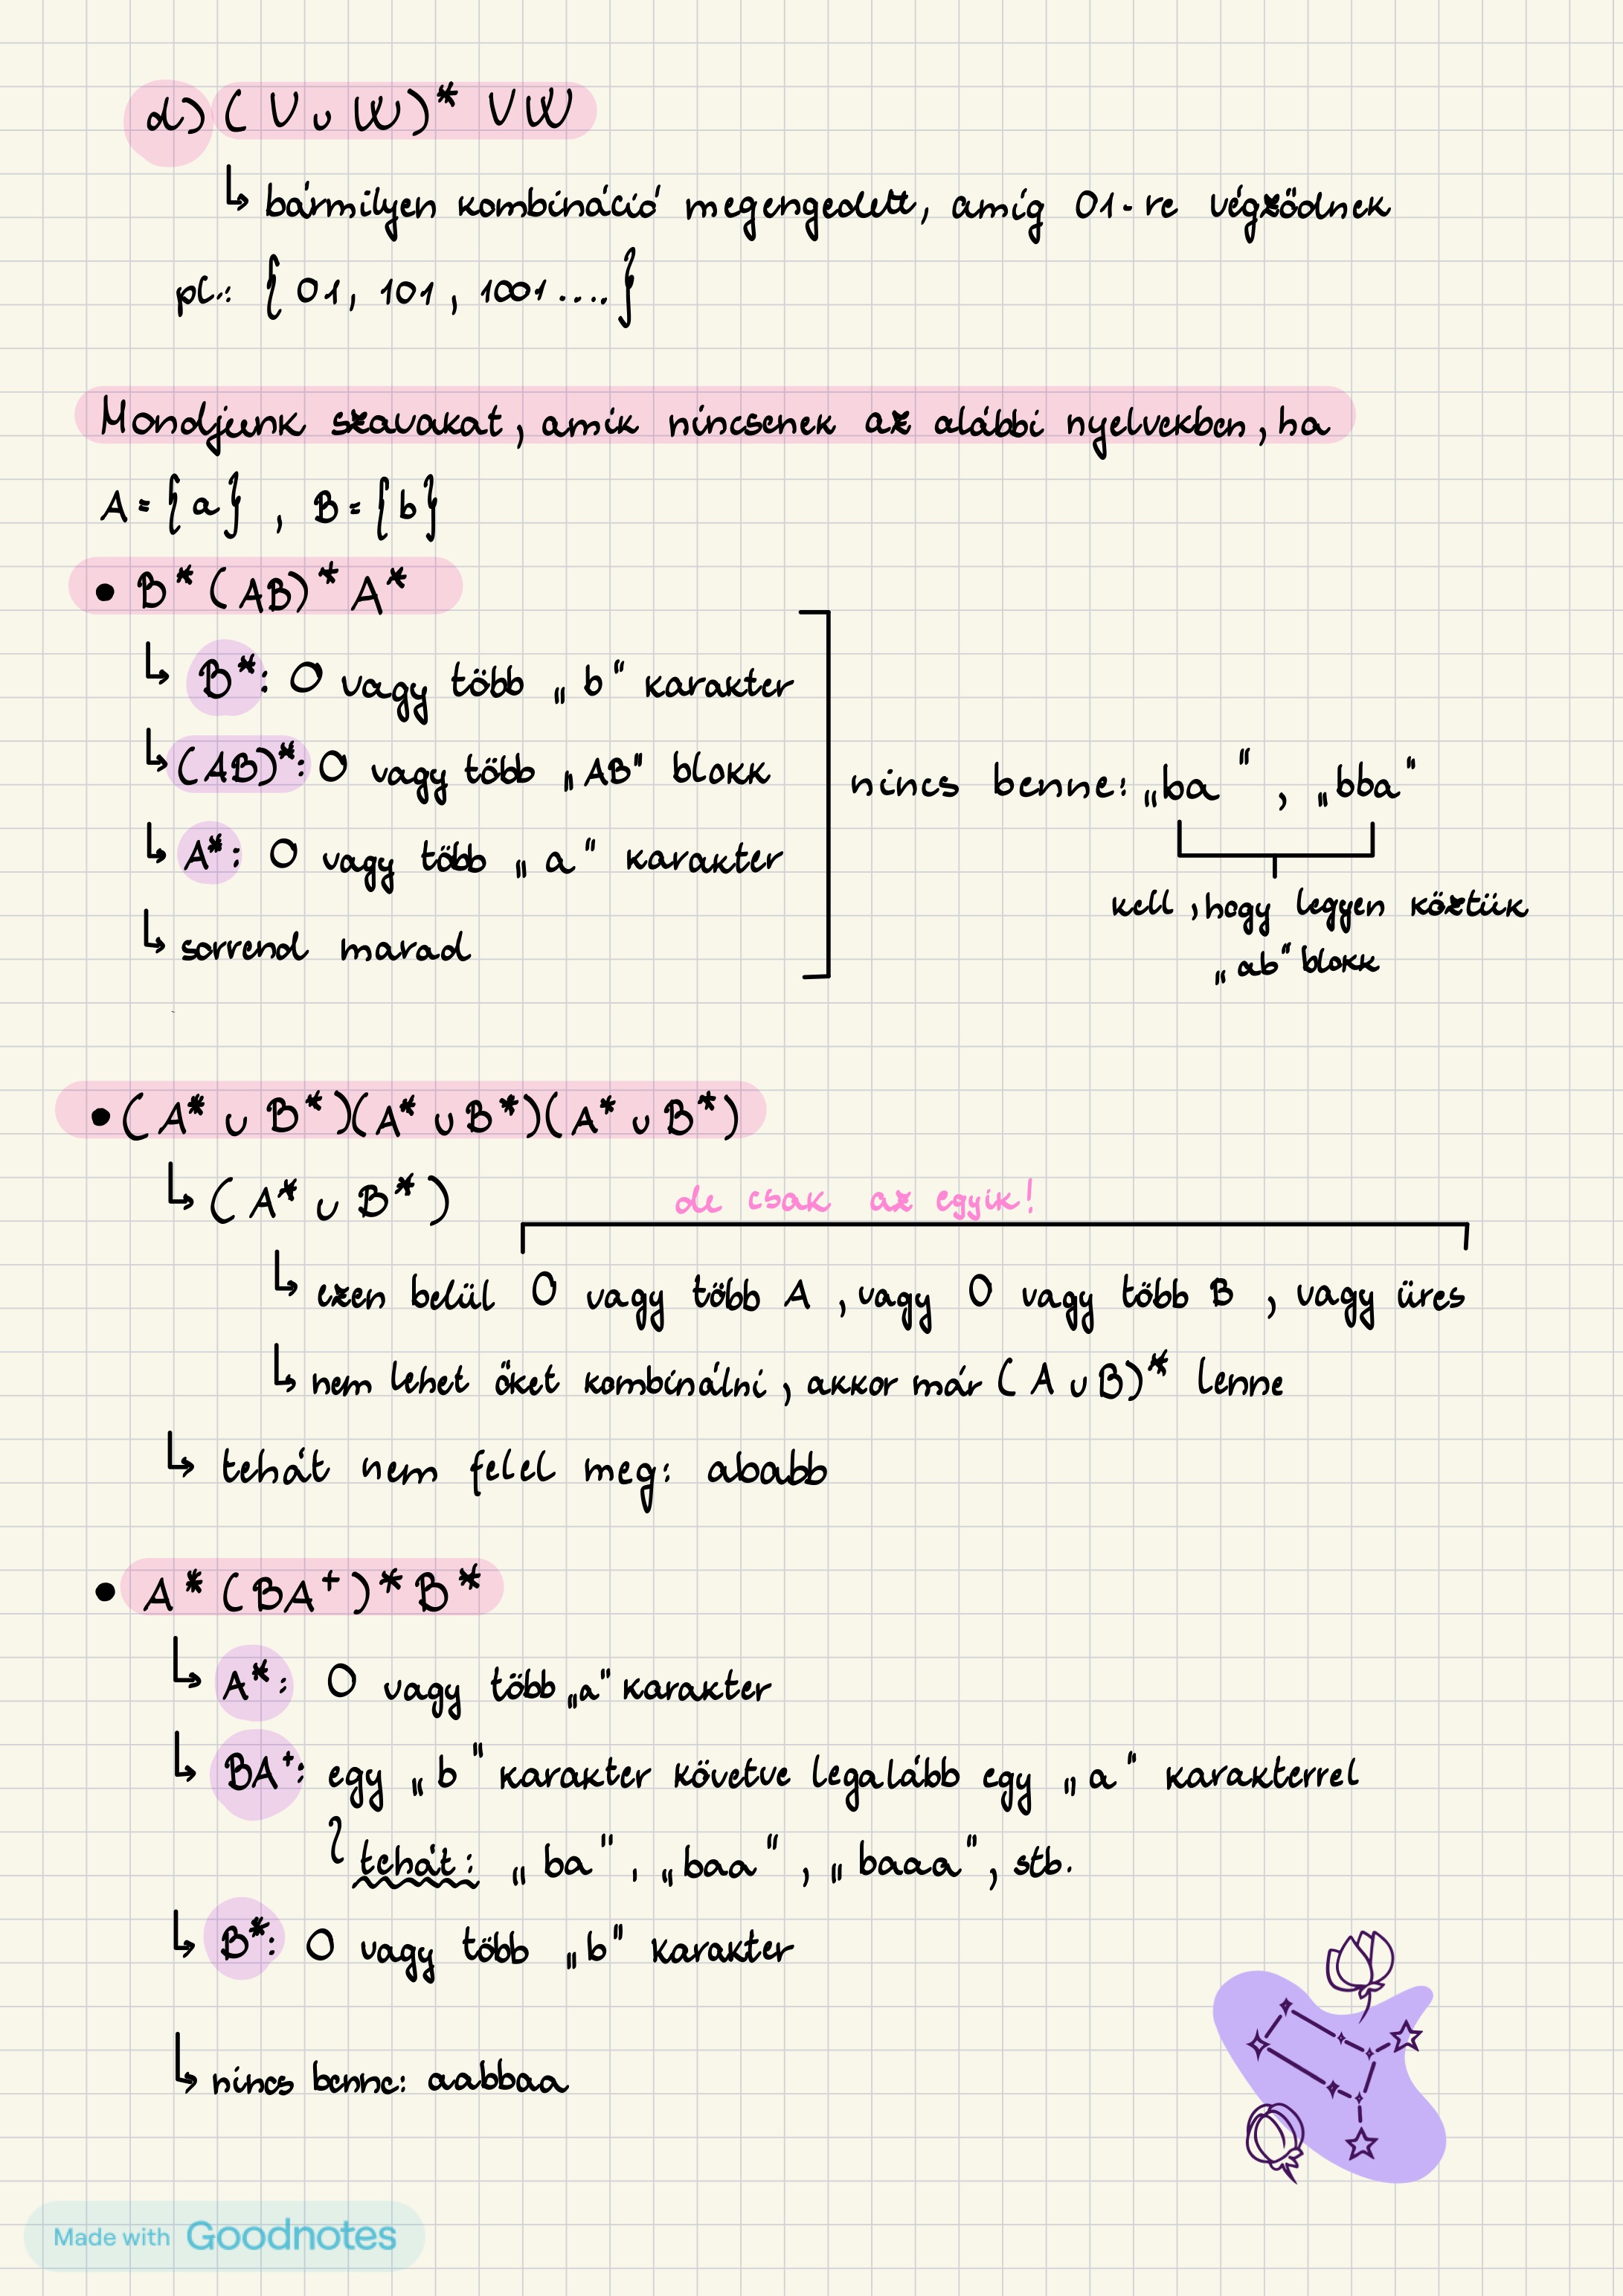 d) (V ∪ W)* VW
↳ bármilyen kombináció megengedett, amíg 01-re végződnek
pl.: {01, 101, 1001....}
Mondjunk szavakat, amik nincsenek az alábbi nyelvekben, ha
A = {a} , B = {b}
• B* (AB)* A*
↳ B*: 0 vagy több „b" karakter
↳ (AB)*: 0 vagy több „AB" blokk
↳ A*: 0 vagy több „a" karakter
↳ sorrend marad
nincs benne: „ba", „bba"
kell, hogy legyen köztük
„ab" blokk
• (A* ∪ B*)(A* ∪ B*)(A* ∪ B*)
↳ (A* ∪ B*)
de csak az egyik!
↳ ezen belül 0 vagy több A , vagy 0 vagy több B , vagy üres
↳ nem lehet őket kombinálni, akkor már (A ∪ B)* lenne
↳ tehát nem felel meg: ababb
• A* (BA⁺)* B*
↳ A*: 0 vagy több „a" karakter
↳ BA⁺: egy „b" karakter követve legalább egy „a" karakterrel
tehát: „ba", „baa", „baaa", stb.
↳ B*: 0 vagy több „b" karakter
↳ nincs benne: aabbaa
Made with Goodnotes